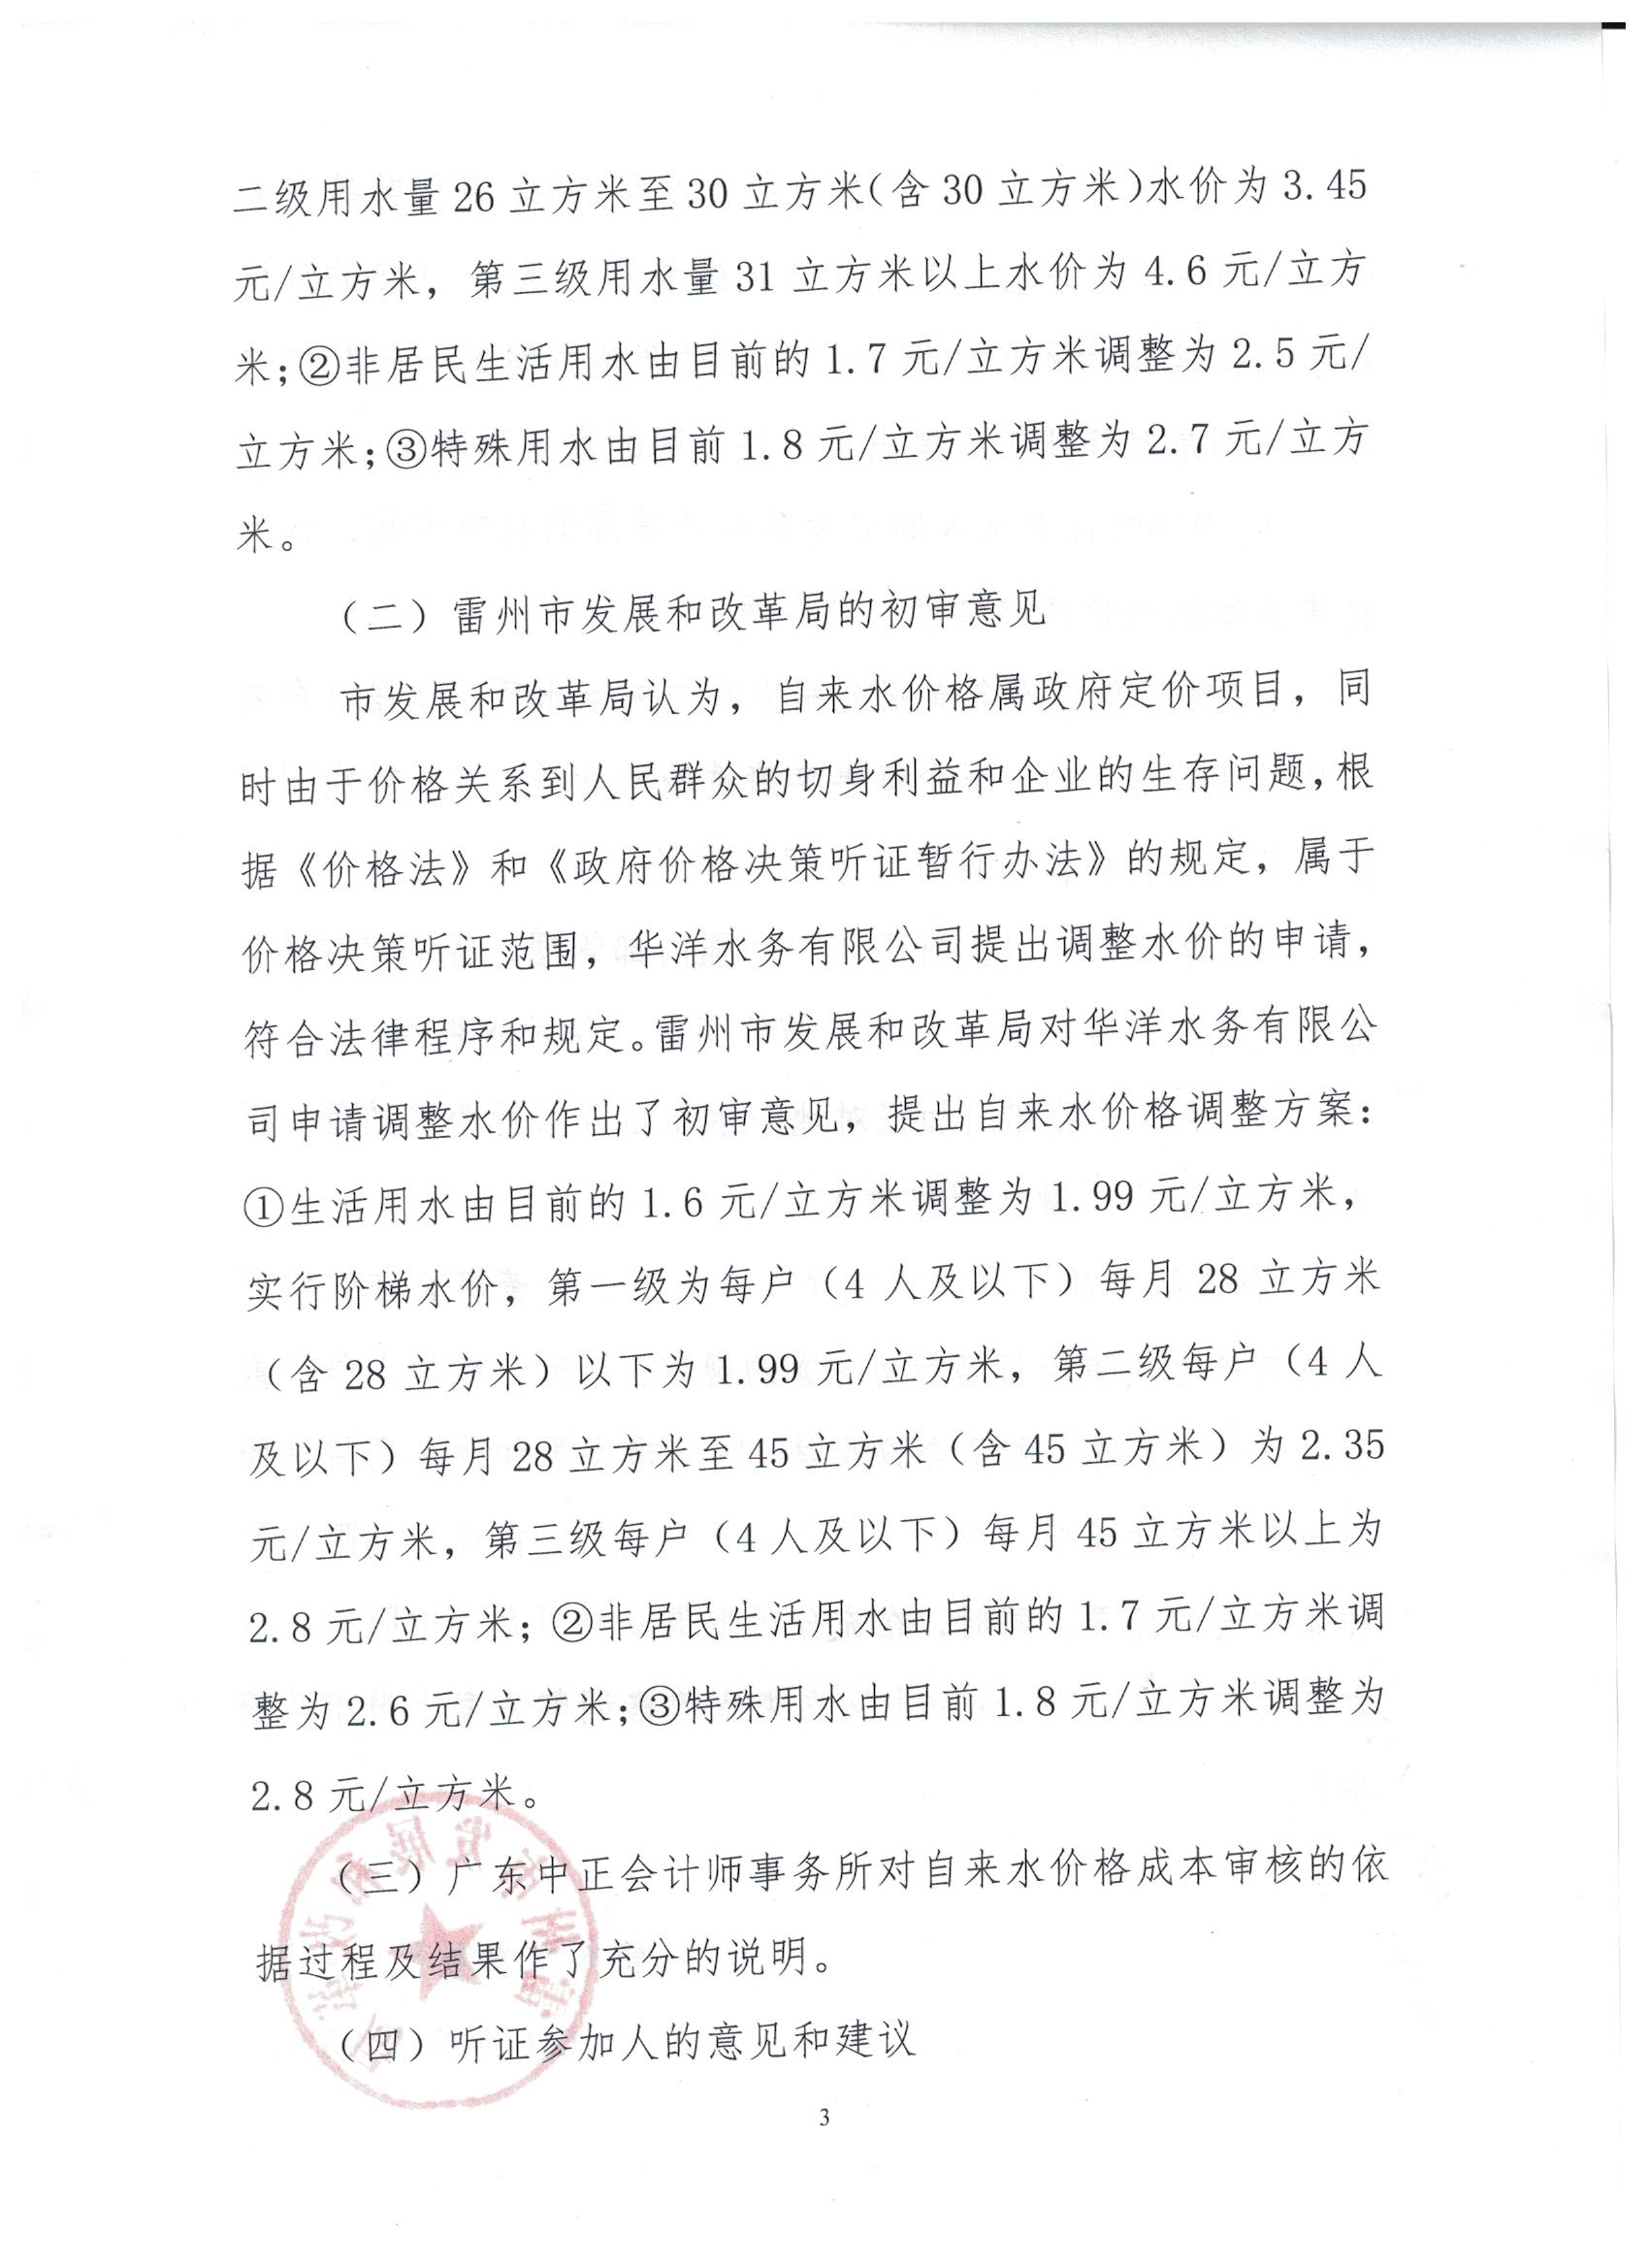 二级用水量26立方米至30立方米(含30立方米)水价为3.45
元/立方米，第三级用水量31立方米以上水价为4.6元/立方
米;②非居民生活用水由目前的1.7元/立方米调整为2.5元/
立方米;③特殊用水由目前1.8元/立方米调整为2.7元/立方
米。
（二）雷州市发展和改革局的初审意见
市发展和改革局认为，自来水价格属政府定价项目，同
时由于价格关系到人民群众的切身利益和企业的生存问题,根
据《价格法》和《政府价格决策听证暂行办法》的规定，属于
价格决策听证范围，华洋水务有限公司提出调整水价的申请，
符合法律程序和规定。雷州市发展和改革局对华洋水务有限公
司申请调整水价作出了初审意见，提出自来水价格调整方案：
①生活用水由目前的1.6元/立方米调整为1.99元/立方米，
实行阶梯水价，第一级为每户（4人及以下）每月28立方米
（含28立方米）以下为1.99元/立方米，第二级每户（4人
及以下）每月28立方米至45立方米（含45立方米）为2.35
元/立方米，第三级每户（4人及以下）每月45立方米以上为
2.8元/立方米；②非居民生活用水由目前的1.7元/立方米调
整为2.6元/立方米;③特殊用水由目前1.8元/立方米调整为
2.8元/立方米。
（三）广东中正会计师事务所对自来水价格成本审核的依
据过程及结果作了充分的说明。
（四）听证参加人的意见和建议
3